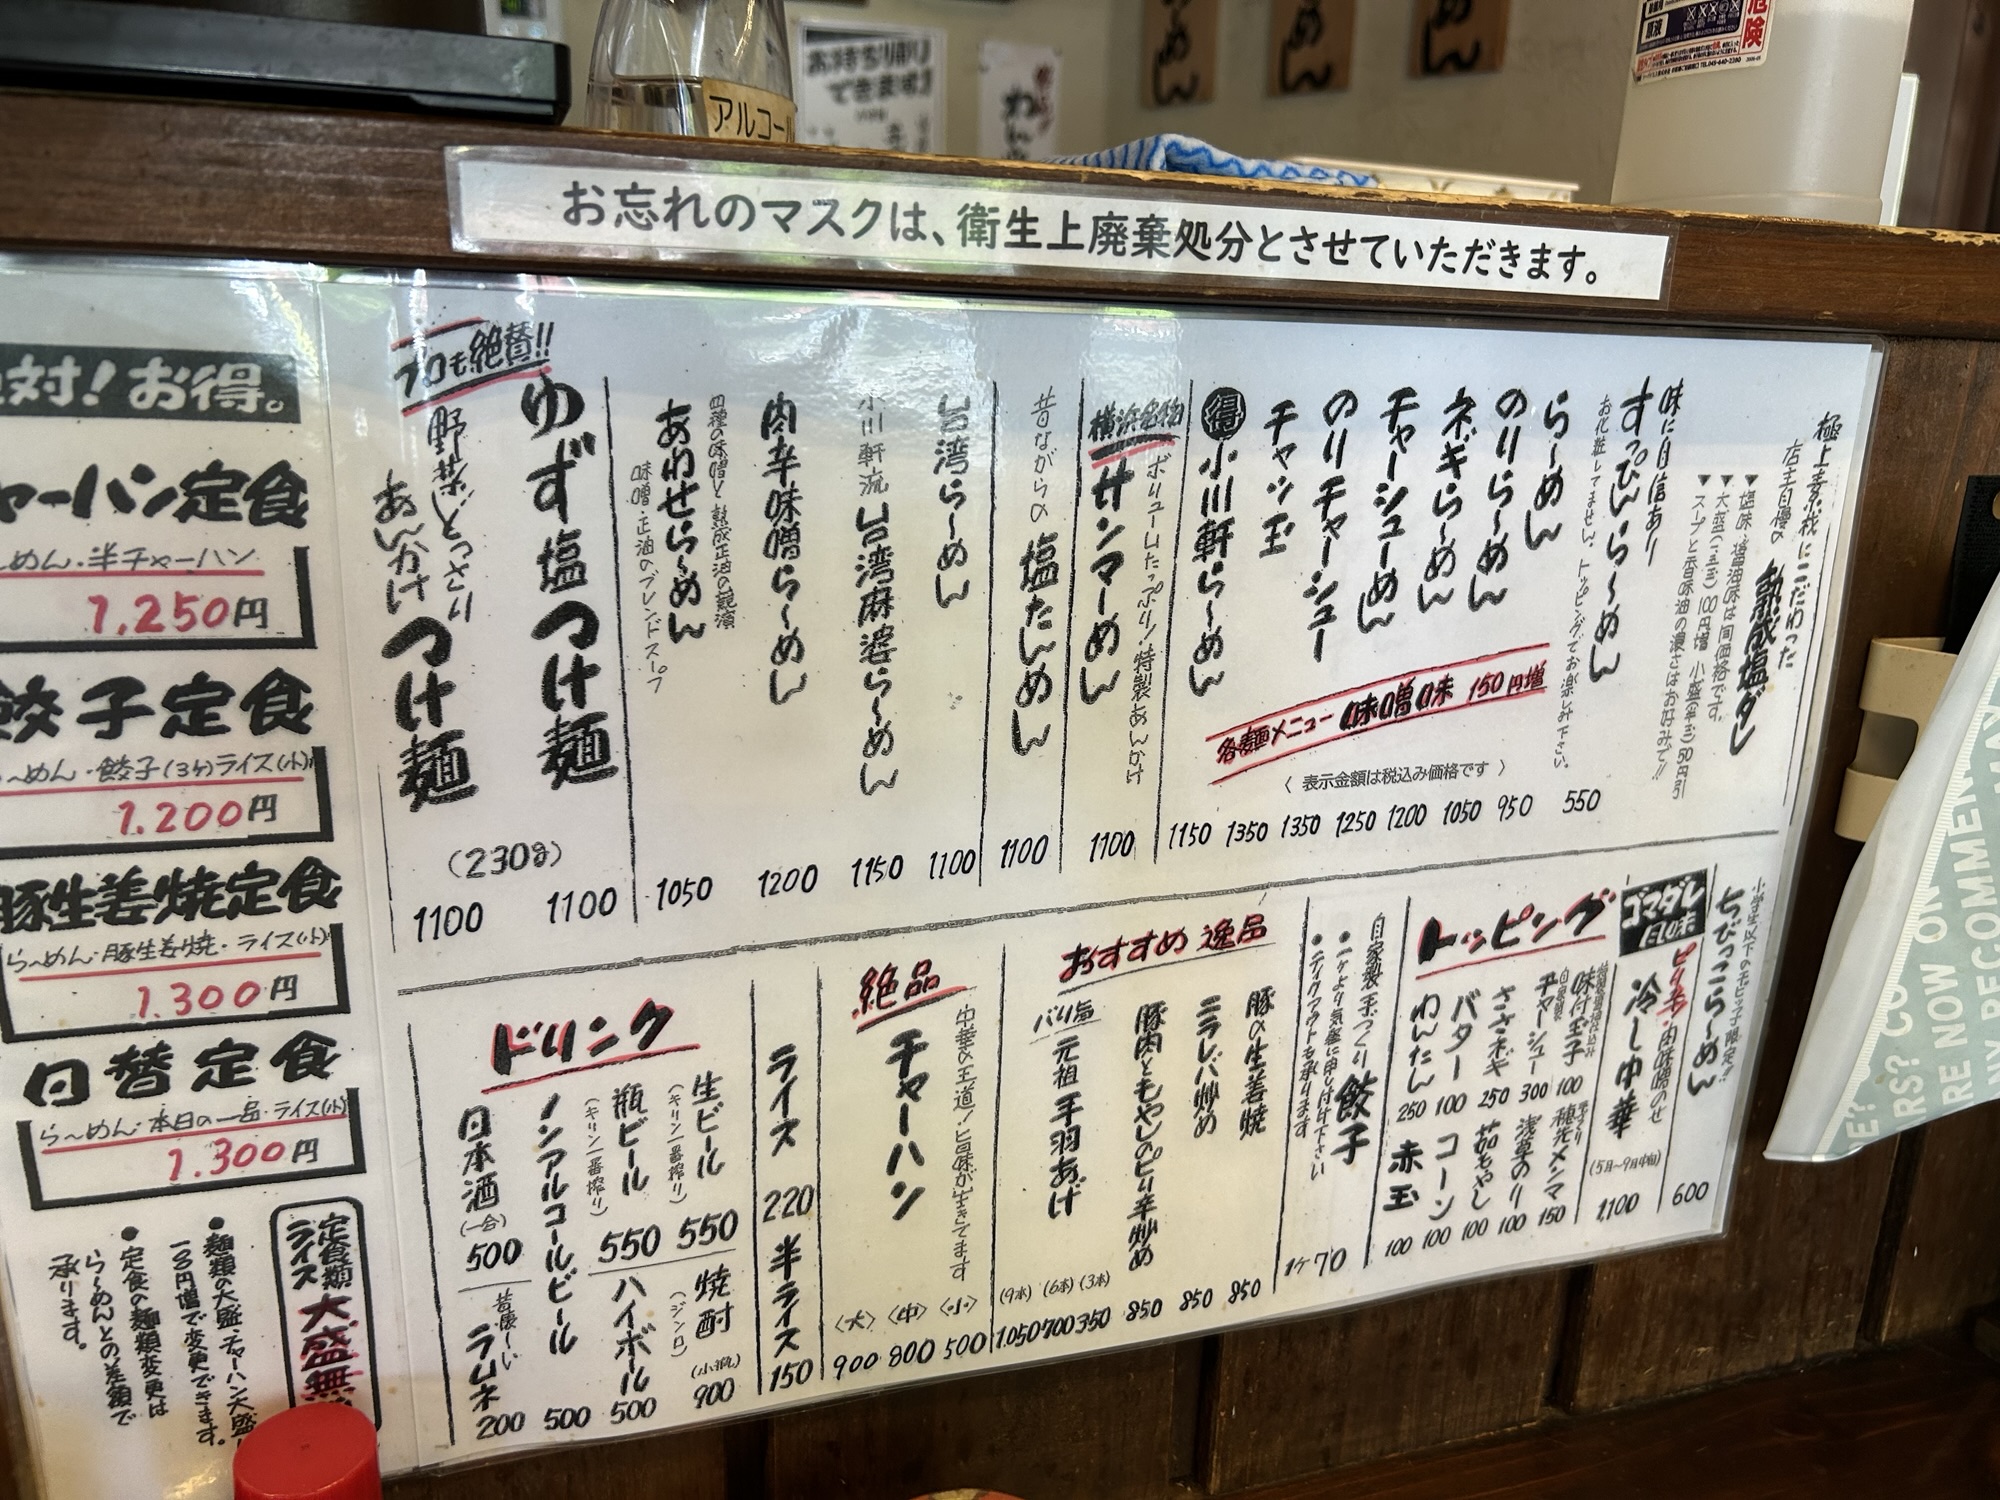 アルコール
お持ち帰り
できます
危険
原液
お忘れのマスクは、衛生上廃棄処分とさせていただきます。
極上素材にこだわった
店主自慢の 熟成塩ダレ
▼塩味・醤油味は同価格です。
▼大盛(二玉)100円増 小盛(半玉)50円引
▼スープと香味油の濃さはお好みで!!
味に自信あり
すっぴんら〜めん 550
お化粧してません、トッピングでお楽しみ下さい。
ら〜めん 950
のりら〜めん 1050
ネギら〜めん 1200
チャーシューめん 1250
のりチャーシュー 1350
チャッ玉 1350
得 小川軒ら〜めん 1150
各麺メニュー味噌味 150円増
〈表示金額は税込み価格です〉
ボリュームたっぷり!特製あんかけ
横浜名物 サンマーめん 1100
昔ながらの 塩たんめん 1100
台湾ら〜めん 1100
小川軒流 台湾麻婆ら〜めん 1150
肉辛味噌ら〜めん 1200
四種の味噌と熟成正油の競演
あわせら〜めん 1050
味噌・正油のブレンドスープ
プロも絶賛!!
ゆず塩つけ麺 1100
野菜どっさり
あんかけつけ麺 1100
(230g)
小学生以下のチビッ子限定!!
ちびっこら〜めん 600
ゴマダレ
ピリ辛・肉味噌のせ
冷し中華 (5月〜9月中旬) 1,100
トッピング
味付玉子 100
自家製 チャーシュー 300
ささネギ 250
バター 100
わんたん 250
手切り 穂先メンマ 150
浅草のり 100
茹もやし 100
コーン 100
赤玉 100
自家製手づくり餃子 1ケ70
●一ケより気楽に申し付け下さい
●テイクアウトも承ります
おすすめ逸品
豚の生姜焼 850
ニラレバ炒め 850
豚肉ともやしのピリ辛炒め 850
パリ塩 元祖手羽あげ
(9本) (6本) (3本)
1,050 700 350
絶品
中華の王道!旨味が生きてます
チャーハン
〈大〉 〈中〉 〈小〉
900 800 500
ライス 220
半ライス 150
ドリンク
生ビール (キリン一番搾り) 550
瓶ビール (キリン一番搾り) 550
ノンアルコールビール 500
日本酒 (一合) 500
焼酎 (ジンロ) (小瓶) 900
ハイボール 500
昔懐〜い ラムネ 200
対!お得。
ャーハン定食
〜めん・半チャーハン
1,250円
餃子定食
〜めん・餃子(3ケ)ライス(小)
1,200円
豚生姜焼定食
ら〜めん・豚生姜焼・ライス(小)
1,300円
日替定食
ら〜めん・本日の一品・ライス(小)
1,300円
定食類
ライス 大盛無
●麺類の大盛・チャーハン大盛
100円増で変更できます。
●定食の麺類変更は
ら〜めんとの差額で
承ります。